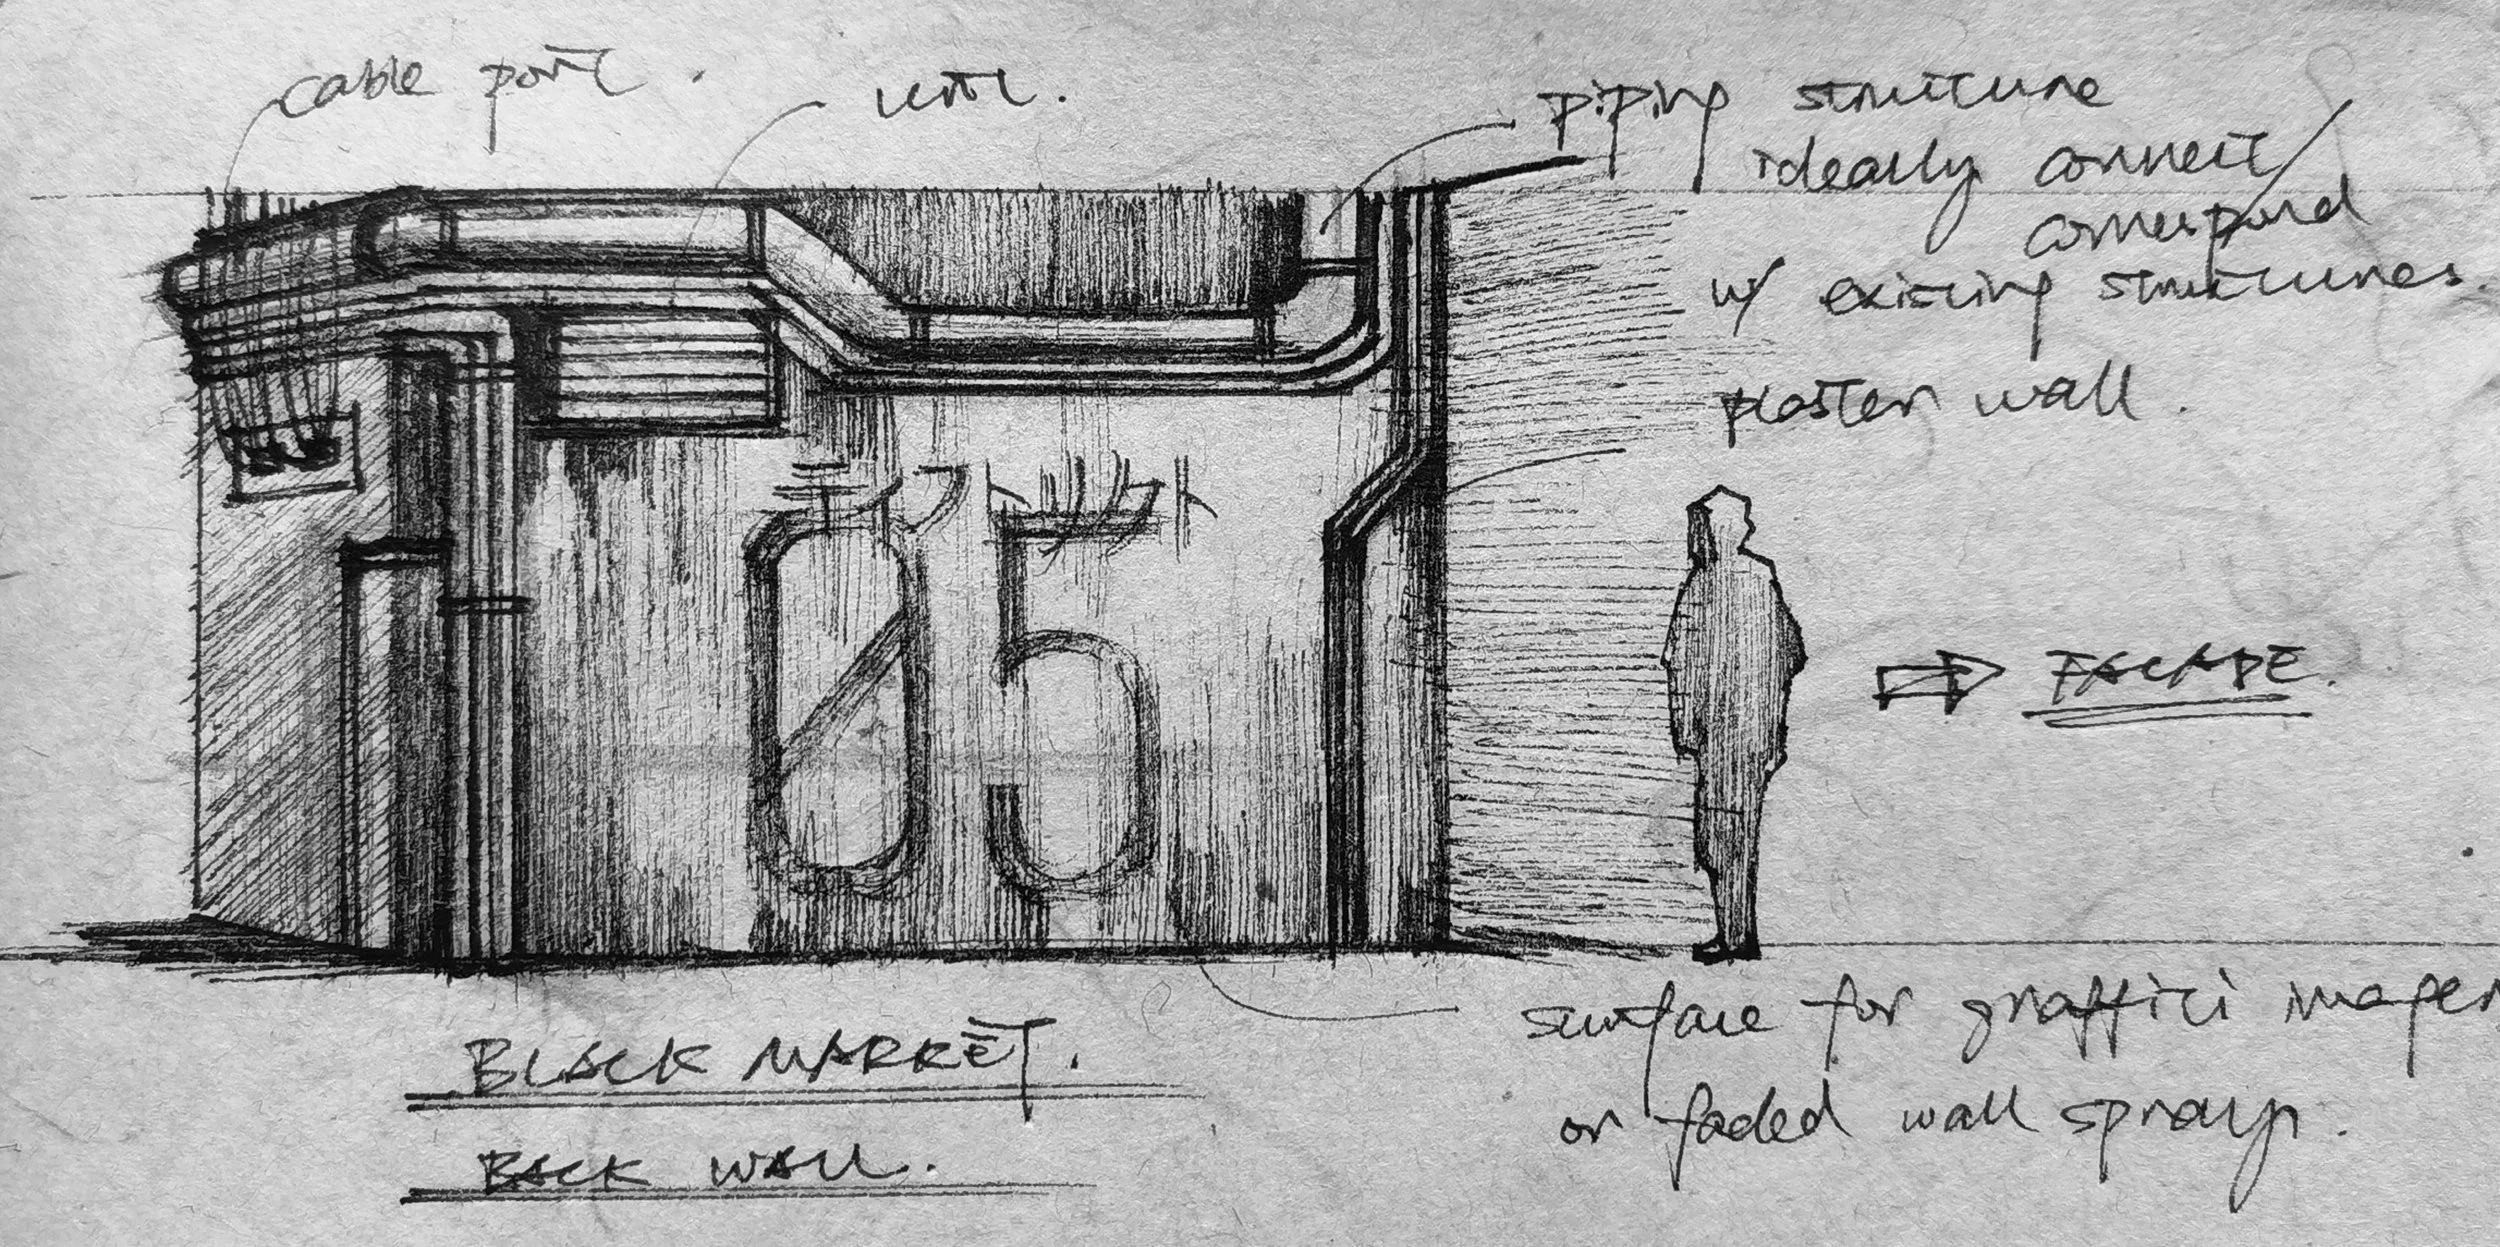 cable port.
vent.
piping structure
ideally connect/
correspond
w/ existing structures.
plaster wall.
05
⇨ FACADE.
surface for graffiti images
or faded wall sprays.
BLACK MARKET.
BACK WALL.